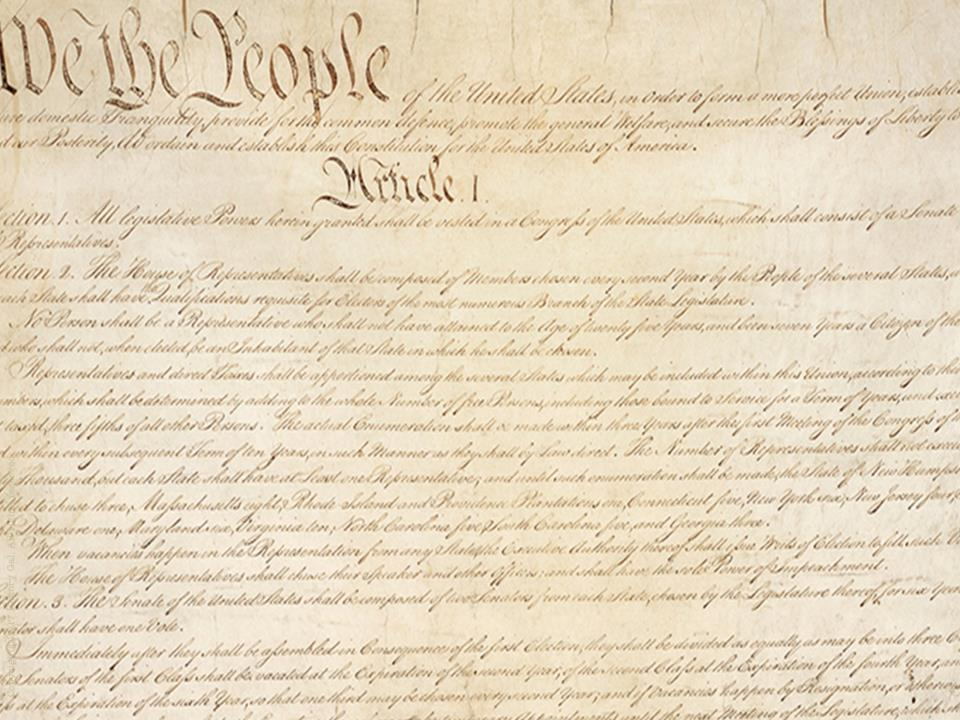 We the People of the United States, in Order to form a more perfect Union, establis
ure domestic Tranquility, provide for the common defence, promote the general Welfare, and secure the Blessings of Liberty to
d our Posterity, do ordain and establish this Constitution for the United States of America.
Article. I.
ection. 1. All legislative Powers herein granted shall be vested in a Congress of the United States, which shall consist of a Senate
Representatives.
ection. 2. The House of Representatives shall be composed of Members chosen every second Year by the People of the several States,
each State shall have the Qualifications requisite for Electors of the most numerous Branch of the State Legislature.
No Person shall be a Representative who shall not have attained to the Age of twenty five Years, and been seven Years a Citizen of the
d who shall not, when elected, be an Inhabitant of that State in which he shall be chosen.
Representatives and direct Taxes shall be apportioned among the several States which may be included within this Union, according to thei
mbers, which shall be determined by adding to the whole Number of free Persons, including those bound to Service for a Term of Years, and exc
t taxed, three fifths of all other Persons. The actual Enumeration shall be made within three Years after the first Meeting of the Congress of
d within every subsequent Term of ten Years, in such Manner as they shall by Law direct. The Number of Representatives shall not excee
ty Thousand, but each State shall have at Least one Representative; and until such enumeration shall be made, the State of New Hampsh
titled to chuse three, Massachusetts eight, Rhode Island and Providence Plantations one, Connecticut five, New York six, New Jersey four,
Delaware one, Maryland six, Virginia ten, North Carolina five, South Carolina five, and Georgia three.
When vacancies happen in the Representation from any State, the Executive Authority thereof shall issue Writs of Election to fill such
The House of Representatives shall chuse their Speaker and other Officers; and shall have the sole Power of Impeachment.
ction. 3. The Senate of the United States shall be composed of two Senators from each State, chosen by the Legislature thereof, for six Years
nator shall have one Vote.
Immediately after they shall be assembled in Consequence of the first Election, they shall be divided as equally as may be into three
he Senators of the first Class shall be vacated at the Expiration of the second Year, of the second Class at the Expiration of the fourth Year, an
ss at the Expiration of the sixth Year, so that one third may be chosen every second Year; and if Vacancies happen by Resignation, or otherwise
until the next Meeting of the Legislature, which